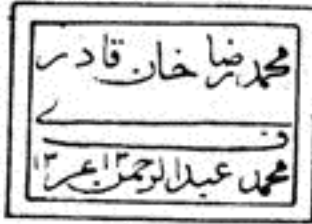 محمد رضا خان قادری
ف
محمد عبدالرحمن عمر